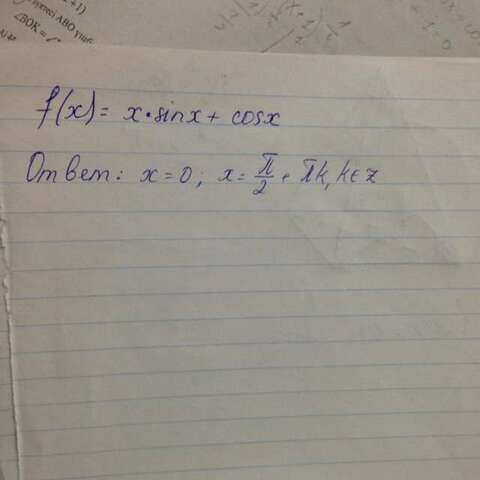 +1)
ABO
∠BOK =
f(x) = x·sinx + cosx
Ответ: x=0; x= π/2 + πk, k∈z